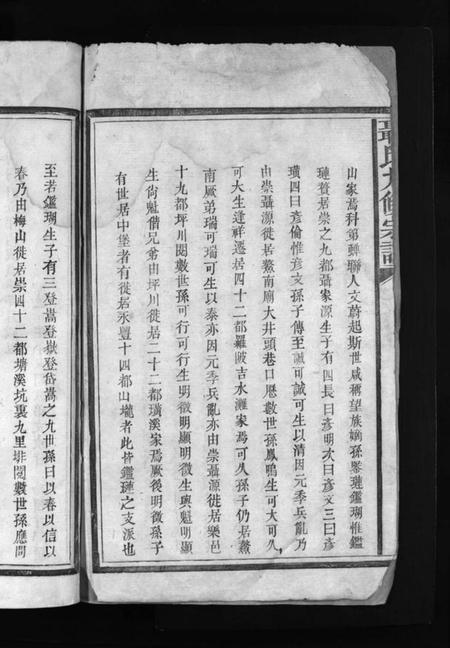 聶氏九修宗譜
山家焉科第蟬聯人文蔚起斯世咸稱望族嫡孫鑒璉鑑瑚惟鑑
璉贅居崇之九都聶家源生子有四長曰彥明次曰彥文三曰彥
璜四曰彥倫惟彥文孫子傳至誠可誠可生以清因元季兵亂乃
由崇聶源徙居鰲南廟大井頭巷口歷數世孫鳳鳴生可大可久
可大生逢祥遷居四十二都羅陂吉水灘家焉可久孫子仍居鰲
南厥弟瑞可瑞可生以泰亦因元季兵亂亦由崇聶源徙居樂邑
十九都坪川閱數世孫可行可行生明微明顯明微生與魁明顯
生尙魁偕兄弟由坪川徙居二十二都璜溪家焉厥後明微孫子
有世居中堡者有徙居永豐十四都山壠者此皆鑑璉之支派也
至若鑑瑚生子有三登嵩登嶽登岱嵩之九世孫曰以春以信以
春乃由梅山徙居崇四十二都塘溪坑裏九里排閱數世孫應問